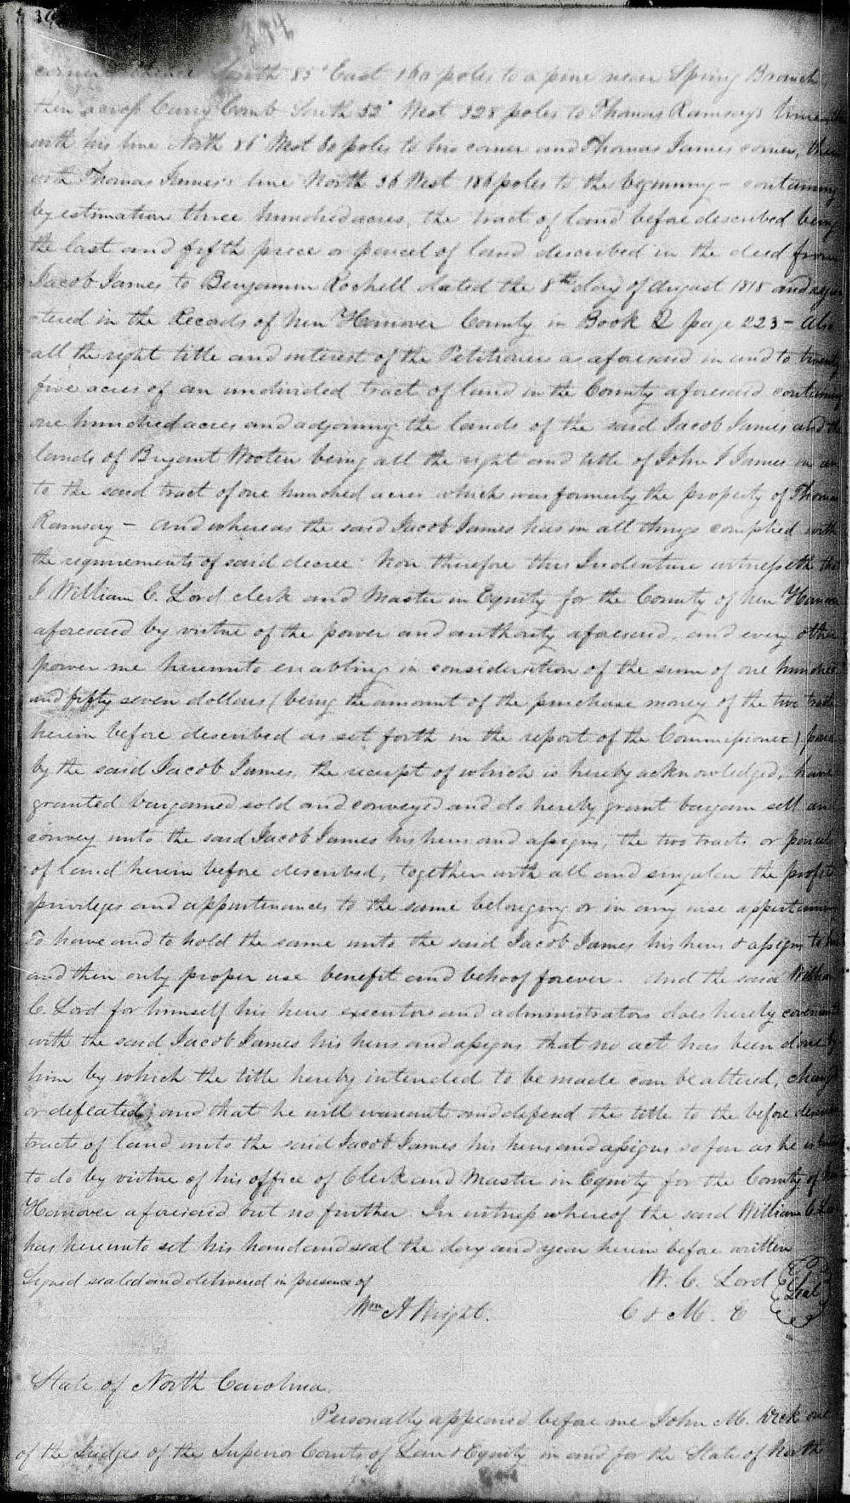 394
corner thence South 85° East 160 poles to a pine near Spring Branch
then across Curry Comb South 52° West 328 poles to Thomas Ramsay's line
with his line North 86° West 60 poles to his corner and Thomas James corner, then
with Thomas James's line North 36 West 186 poles to the beginning - containing
by estimation three hundred acres, the tract of land before described being
the last and fifth piece or parcel of land described in the deed from
Jacob James to Benjamin Rochell dated the 8th day of August 1818 and regis
stered in the Records of New Hanover County in Book Q page 223 - Also
all the right title and interest of the Petitioners as aforesaid in and to twenty
five acres of an undivided tract of land in the County aforesaid containing
one hundred acres and adjoining the lands of the said Jacob James and the
lands of Bryant Wooten being all the right and title of John J James in an
to the said tract of one hundred acres which was formerly the property of Thomas
Ramsay - And whereas the said Jacob James has in all things complied with
the requirements of said decree: Now therefore this Indenture witnesseth that
I William C. Lord clerk and Master in Equity for the County of New Hanover
aforesaid by virtue of the power and authority aforesaid, and every other
power me hereunto enabling in consideration of the sum of one hundred
and fifty seven dollars (being the amount of the purchase money of the two tracts
herein before described as set forth in the report of the Commissioner) paid
by the said Jacob James, the receipt of which is hereby acknowledged, have
granted bargained sold and conveyed and do hereby grant bargain sell and
convey unto the said Jacob James his heirs and assigns, the two tracts or parcels
of land herein before described, together with all and singular the profits
privileges and appurtenances to the same belonging or in any wise appertaining
To have and to hold the same unto the said Jacob James his heirs & assigns to his
and their only proper use benefit and behoof forever. And the said William
C. Lord for himself his heirs executors and administrators does hereby covenant
with the said Jacob James his heirs and assigns that no act has been done by
him by which the title hereby intended to be made can be altered, changed
or defeated; and that he will warrant and defend the title to the before described
tracts of land unto the said Jacob James his heirs and assigns so far as he is bound
to do by virtue of his office of Clerk and Master in Equity for the County of New
Hanover aforesaid but no further. In witness whereof the said William C Lord
has hereunto set his hand and seal the day and year herein before written
Signed sealed and delivered in presence of W. C. Lord Seal
Wm A Wright. C & M. E
State of North Carolina
Personally appeared before me John M. Dick one
of the Judges of the Superior Courts of Law & Equity in and for the State of North